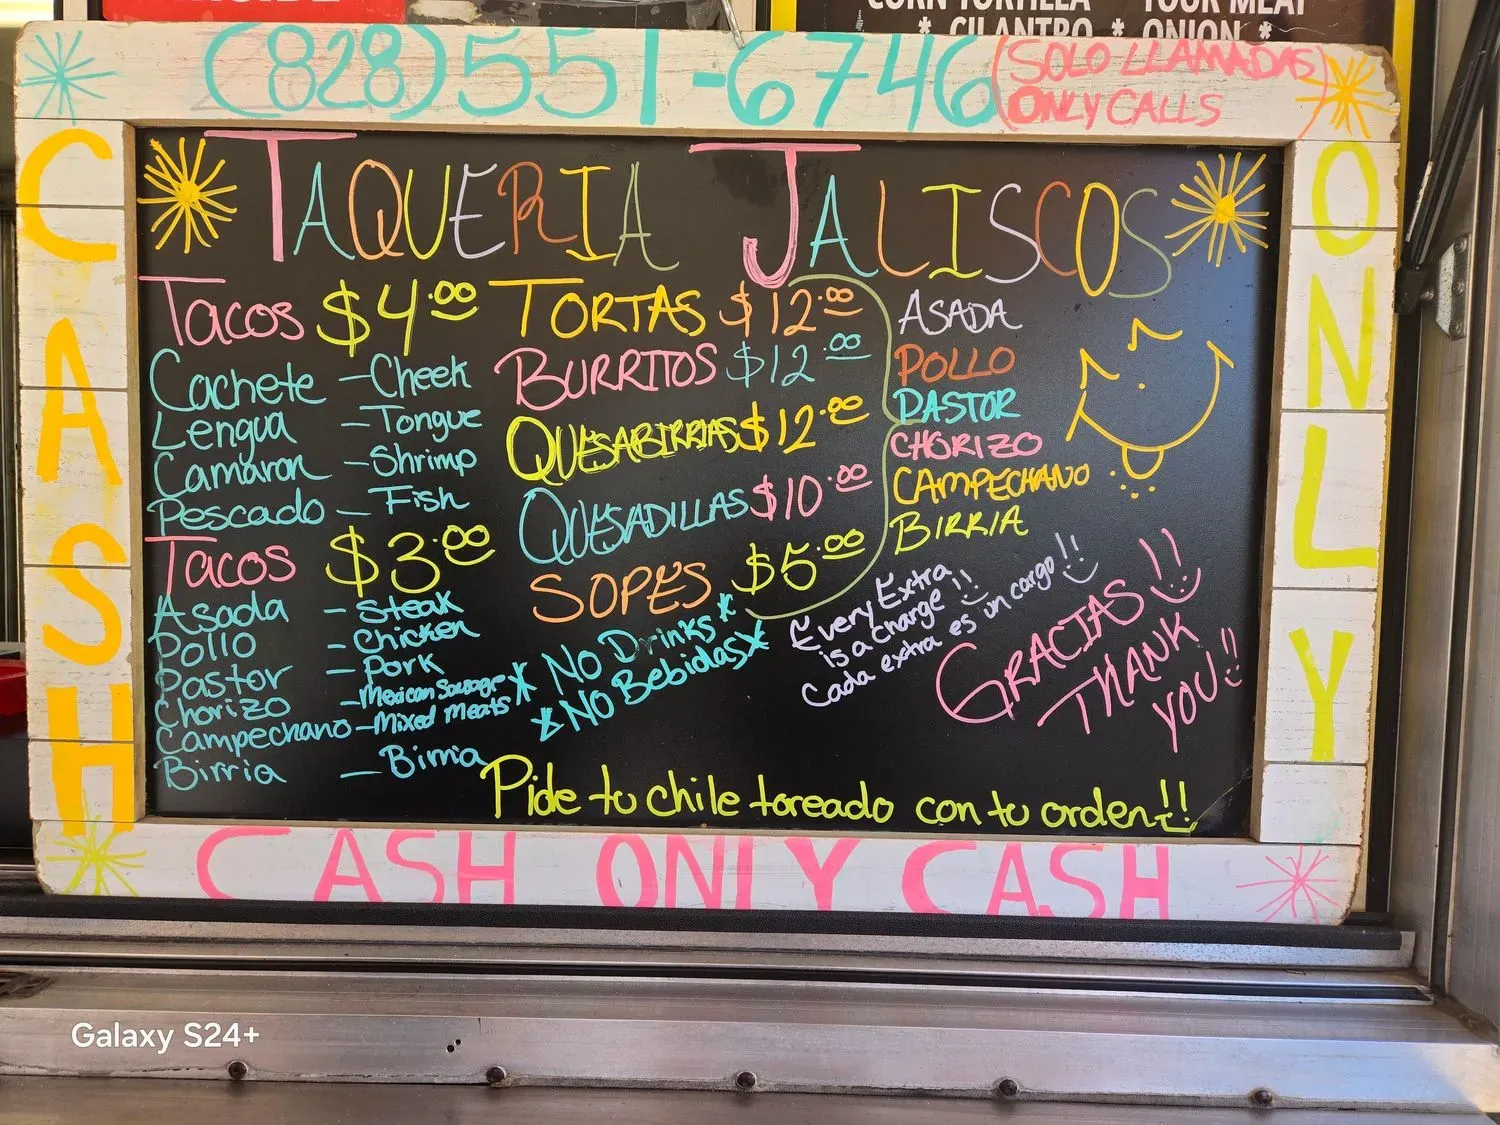 CORN TORTILLA * YOUR MEAT
* CILANTRO * ONION *
(828)551-6746
(SOLO LLAMADAS)
(ONLY CALLS)
CASH
ONLY
TAQUERIA JALISCOS
TACOS $4.00
Cachete - Cheek
Lengua - Tongue
Camaron - Shrimp
Pescado - Fish
TACOS $3.00
Asada - Steak
Pollo - Chicken
Pastor - Pork
Chorizo - Mexican Sausage
Campechano - Mixed Meats
Birria - Birria
TORTAS $12.00
BURRITOS $12.00
QUESABIRRIAS $12.00
QUESADILLAS $10.00
SOPES $5.00
ASADA
POLLO
PASTOR
CHORIZO
CAMPECHANO
BIRRIA
* NO Drinks *
* NO Bebidas *
Every Extra
is a charge!!
Cada extra es un cargo!!
GRACIAS!!
THANK
YOU!!
Pide tu chile toreado con tu orden!!
CASH ONLY CASH
Galaxy S24+